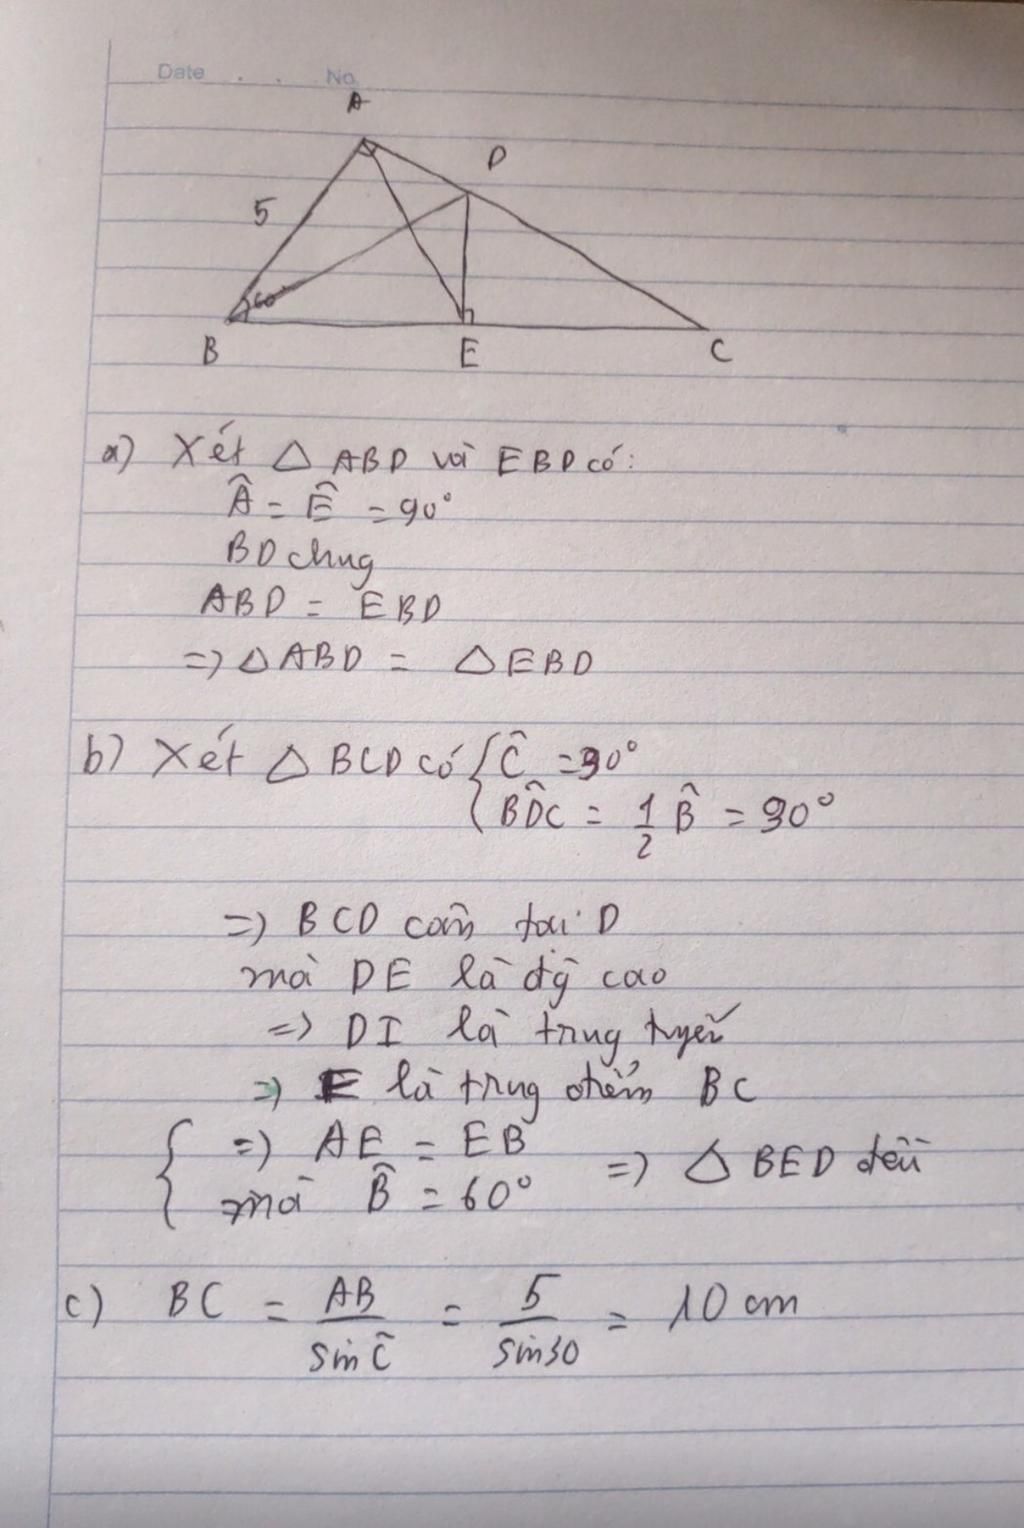 Date . . No.
A
D
5
60°
B
E
C
a) Xét △ ABD và EBD có:
Â = Ê = 90°
BD chug
ABD = EBD
=> △ ABD = △ EBD
b) Xét △ BCD có { Ĉ = 30°
BD̂C = 1/2 B̂ = 30°
=> BCD cân tại D
mà DE là đg cao
=> DI là trug tuyến
=> E là trug điểm BC
{ => AE = EB
mà B̂ = 60° => △ BED đều
c) BC = AB / sin Ĉ = 5 / sin30 = 10 cm